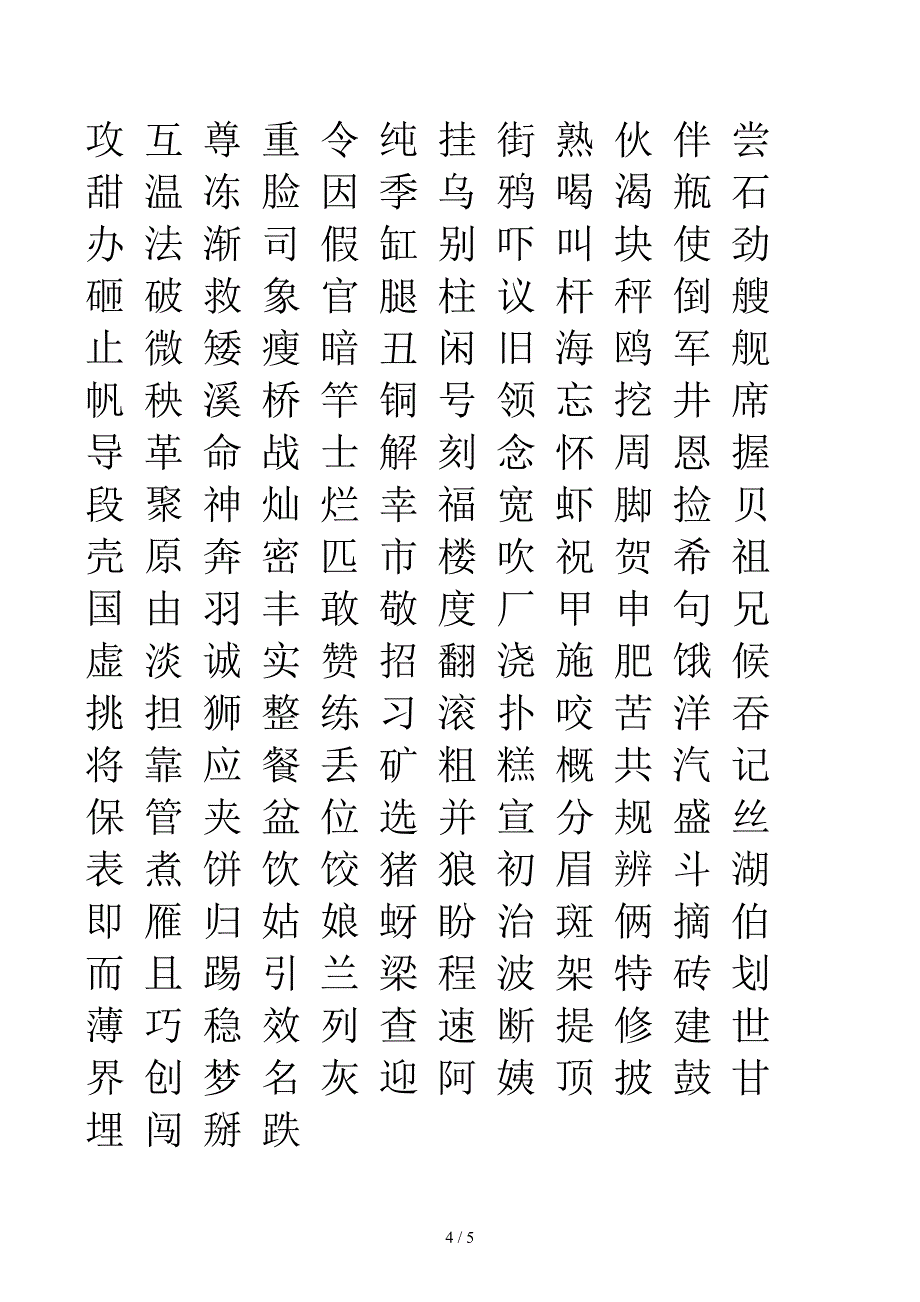 攻 互 尊 重 令 纯 挂 街 熟 伙 伴 尝
甜 温 冻 脸 因 季 乌 鸦 喝 渴 瓶 石
办 法 渐 司 假 缸 别 吓 叫 块 使 劲
砸 破 救 象 官 腿 柱 议 杆 秤 倒 艘
止 微 矮 瘦 暗 丑 闲 旧 海 鸥 军 舰
帆 秧 溪 桥 竿 铜 号 领 忘 挖 井 席
导 革 命 战 士 解 刻 念 怀 周 恩 握
段 聚 神 灿 烂 幸 福 宽 虾 脚 捡 贝
壳 原 奔 密 匹 市 楼 吹 祝 贺 希 祖
国 由 羽 丰 敢 敬 度 厂 甲 申 句 兄
虚 淡 诚 实 赞 招 翻 浇 施 肥 饿 候
挑 担 狮 整 练 习 滚 扑 咬 苦 洋 吞
将 靠 应 餐 丢 矿 粗 糕 概 共 汽 记
保 管 夹 盆 位 选 并 宣 分 规 盛 丝
表 煮 饼 饮 饺 猪 狼 初 眉 辨 斗 湖
即 雁 归 姑 娘 蚜 盼 治 斑 俩 摘 伯
而 且 踢 引 兰 梁 程 波 架 特 砖 划
薄 巧 稳 效 列 查 速 断 提 修 建 世
界 创 梦 名 灰 迎 阿 姨 顶 披 鼓 甘
埋 闯 掰 跌
4 / 5